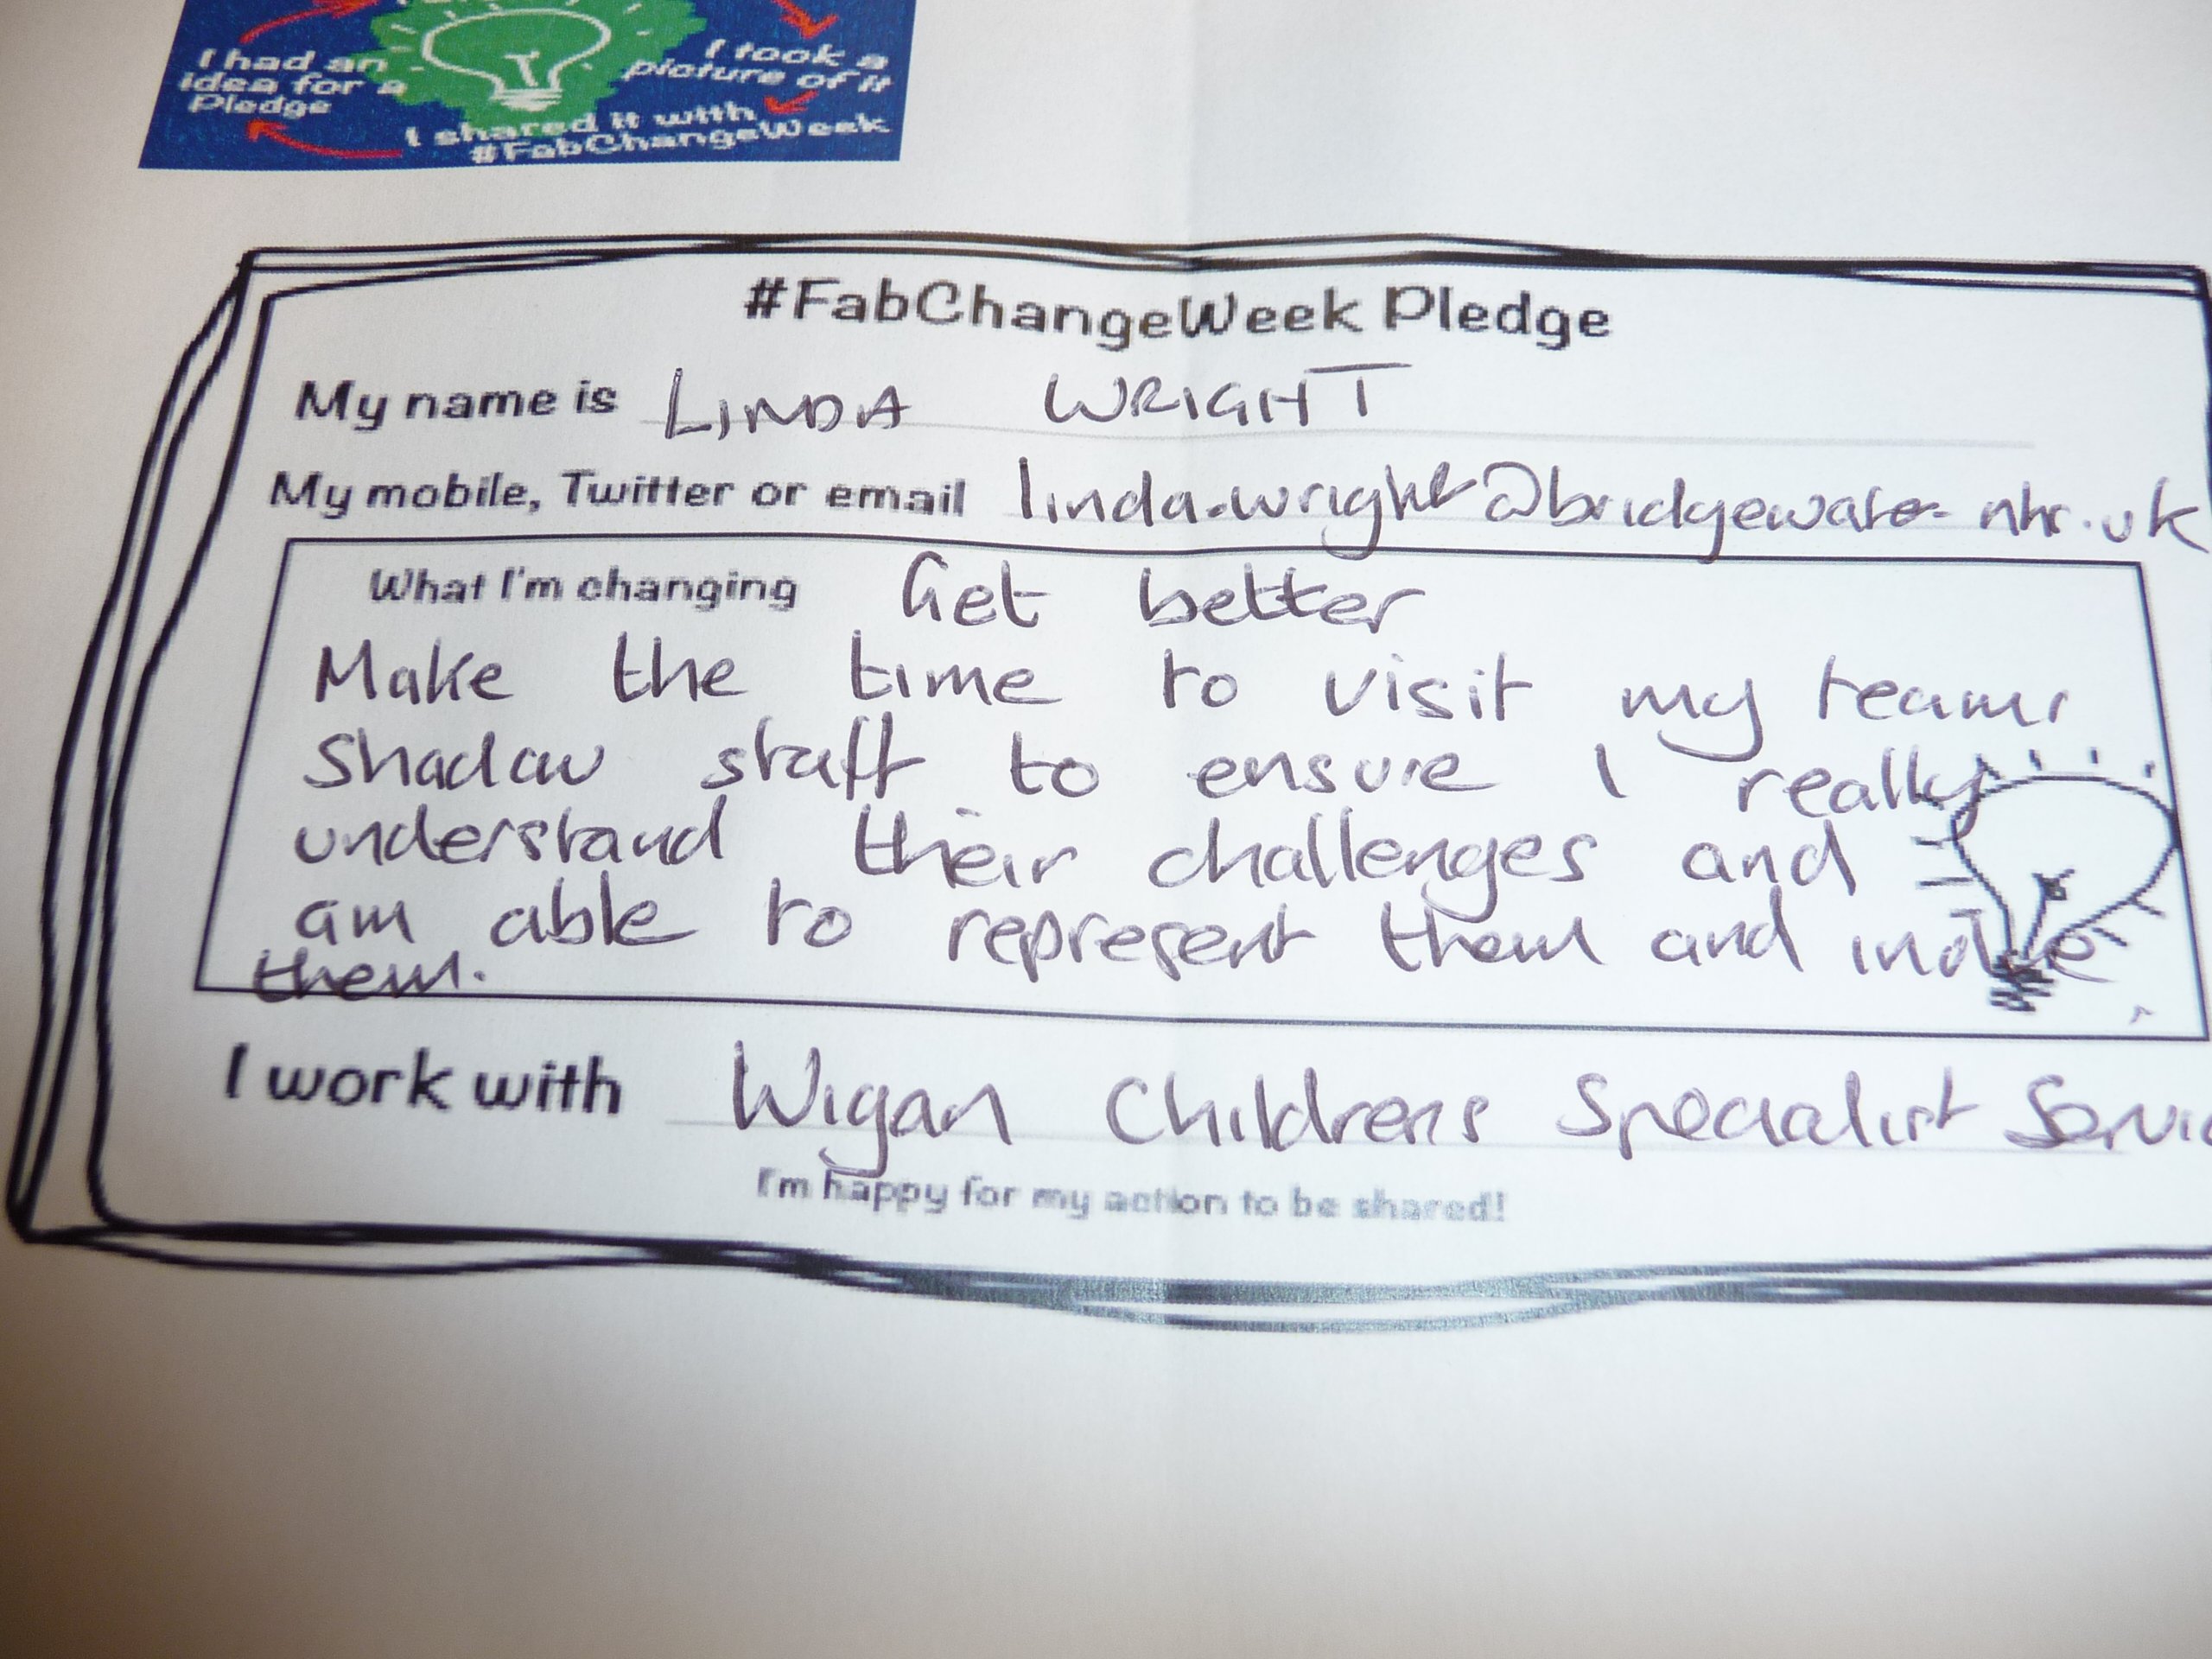 I had an
idea for a
Pledge
I took a
picture of it
I shared it with
#FabChangeWeek
#FabChangeWeek Pledge
My name is LINDA WRIGHT
My mobile, Twitter or email linda.wright@bridgewater.nhs.uk
What I'm changing Get better
Make the time to visit my teams
Shadow staff to ensure I really
understand their challenges and
am able to represent them and
them.
I work with Wigan Childrens Specialist
I'm happy for my action to be shared!